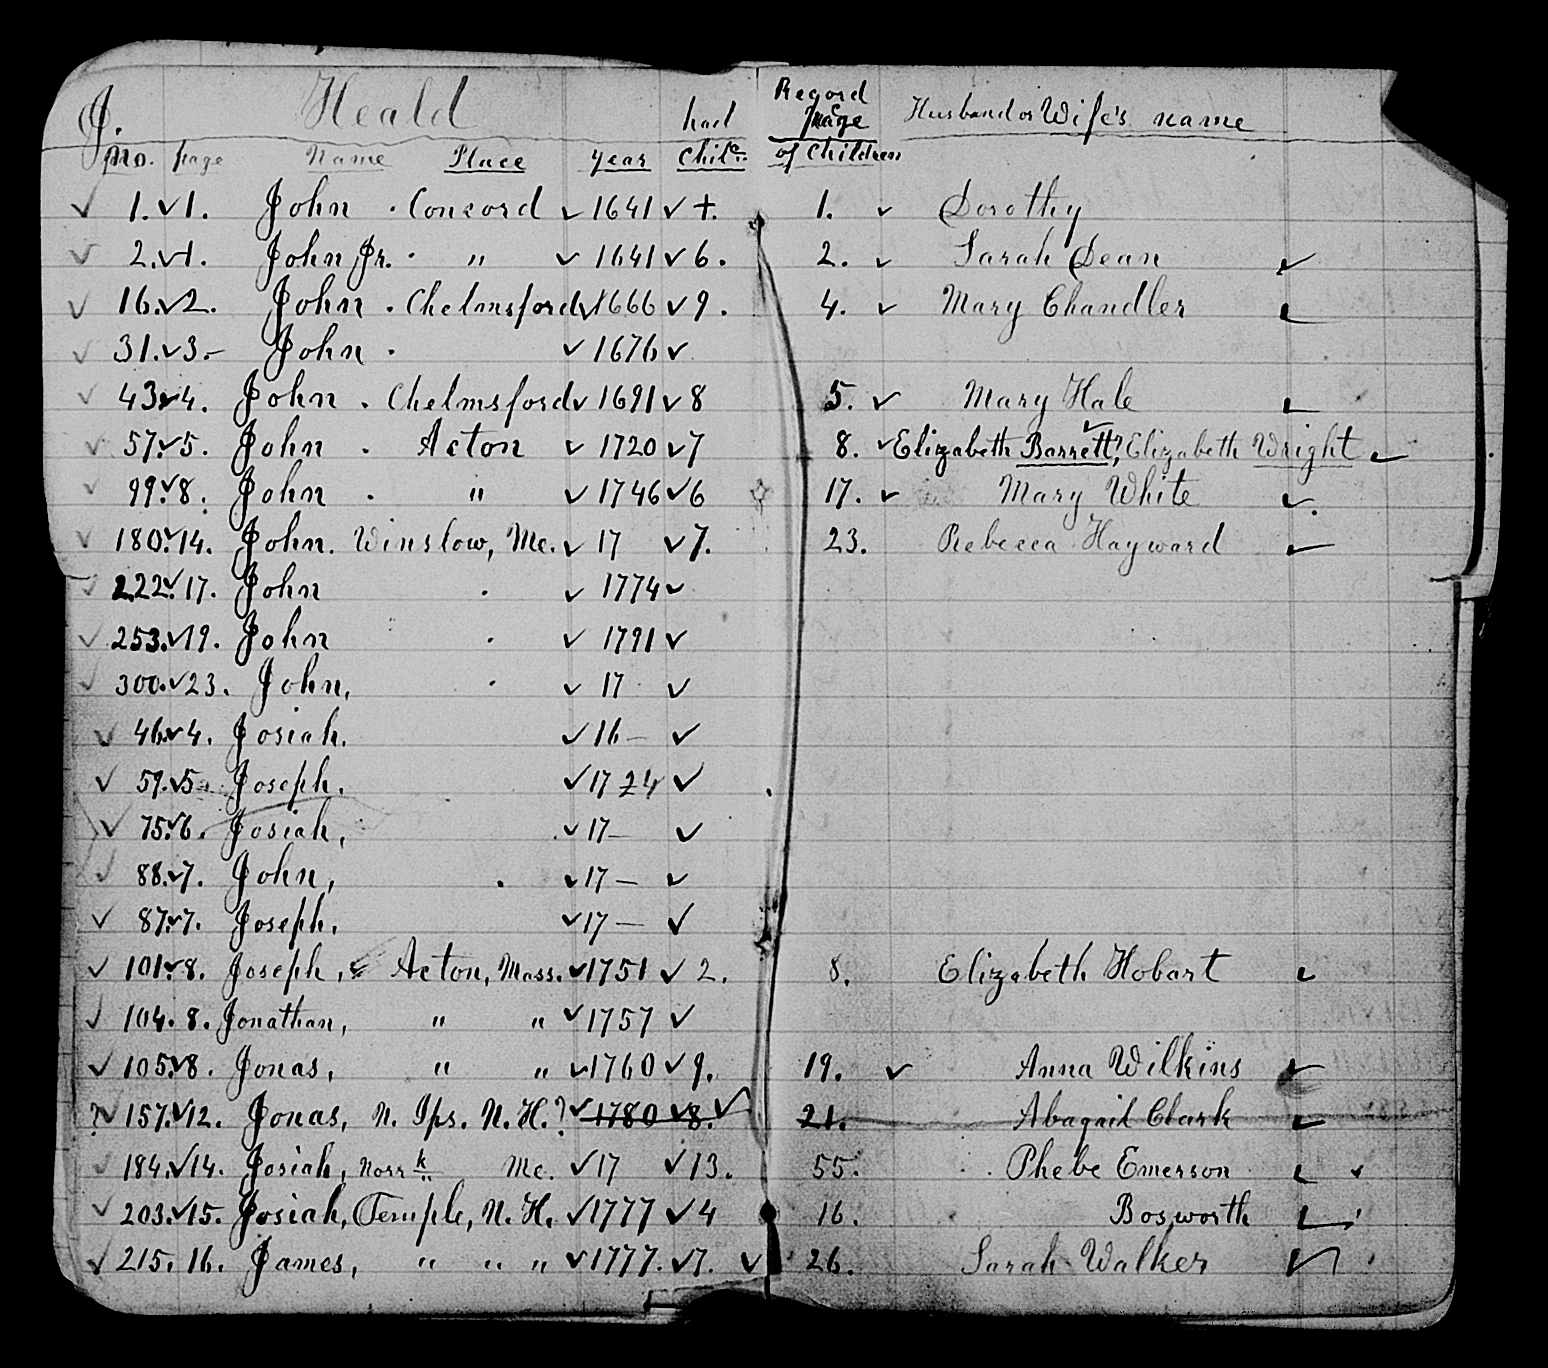 J. Heald had Record page Husband or Wife's name
no. page Name Place year Chil. of Children
✓ 1. ✓ 1. John . Concord ✓ 1641 ✓ +. 1. ✓ Dorothy
✓ 2. ✓ 1. John Jr. . " ✓ 1641 ✓ 6. 2. ✓ Sarah Dean ✓
✓ 16. ✓ 2. John . Chelmsford ✓ 1666 ✓ 9. 4. ✓ Mary Chandler ✓
✓ 31. ✓ 3. – John . ✓ 1676 ✓
✓ 43 ✓ 4. John . Chelmsford ✓ 1691 ✓ 8 5. ✓ Mary Hale ✓
✓ 57. ✓ 5. John . Acton ✓ 1720 ✓ 7 8. ✓ Elizabeth Barrett?, Elizabeth Wright ✓
✓ 99. ✓ 8. John . " ✓ 1746 ✓ 6 17. ✓ Mary White ✓
✓ 180. ✓ 14. John. Winslow, Me. ✓ 17 ✓ 7. 23. Rebecca Hayward ✓
✓ 222. ✓ 17. John . ✓ 1774 ✓
✓ 253. ✓ 19. John . ✓ 1791 ✓
✓ 300. ✓ 23. John, . ✓ 17 ✓
✓ 46. ✓ 4. Josiah. ✓ 16— ✓
✓ 59. ✓ 5 Joseph, ✓ 1724 ✓
✓ 75. ✓ 6. Josiah, ✓ 17— ✓
✓ 88. ✓ 7. John, . ✓ 17— ✓
✓ 87. ✓ 7. Joseph, ✓ 17— ✓
✓ 101. ✓ 8. Joseph, ✓ Acton, Mass. ✓ 1751 ✓ 2. 8. Elizabeth Hobart ✓
✓ 104. 8. Jonathan, " " ✓ 1757 ✓
✓ 105. ✓ 8. Jonas, " " ✓ 1760 ✓ 9. 19. ✓ Anna Wilkins ✓
? ✓ 157. ✓ 12. Jonas, N. Ips. N. H.? ✓ 1780 ✓ 8. ✓ 21. Abagail Clark ✓
✓ 184. ✓ 14. Josiah, Norr k Me. ✓ 17 ✓ 13. 55. Phebe Emerson ✓ ✓
✓ 203. ✓ 15. Josiah, Temple, N. H. ✓ 1777 ✓ 4 16. Bosworth ✓
✓ 215. 16. James, " " " ✓ 1777. ✓ 7. ✓ 26. Sarah Walker ✓